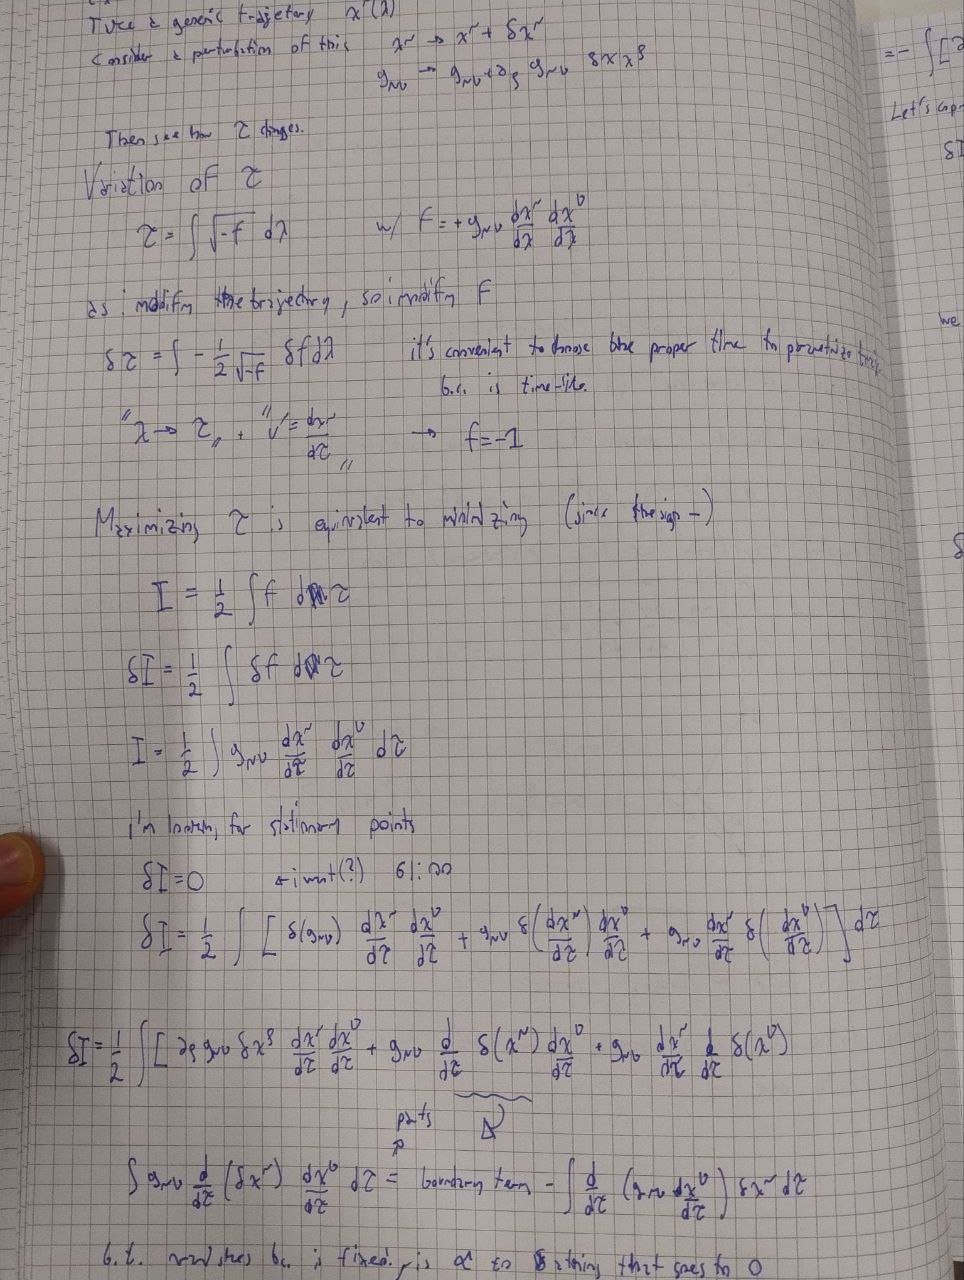 Take a generic trajectory x^μ(λ)
Consider a perturbation of this x^μ → x^μ + δx^μ
g_μν → g_μν + ∂_ρ g_μν δx^ρ
Then see how τ changes.
Variation of τ
τ = ∫ √-f dλ w/ f = + g_μν dx^μ/dλ dx^ν/dλ
as i modify the trajectory, so i modify f
δτ = ∫ - 1/2 1/√-f δf dλ it's convenient to choose the proper time to
b.c. is time-like.
"λ → τ" + "V^μ = dx^μ/dτ" → f = -1
Maximizing τ is equivalent to minimizing (since the sign -)
I = 1/2 ∫ f dτ
δI = 1/2 ∫ δf dτ
I = 1/2 ∫ g_μν dx^μ/dτ dx^ν/dτ dτ
i'm looking for stationary points
δI = 0
δI = 1/2 ∫ [ δ(g_μν) dx^μ/dτ dx^ν/dτ + g_μν δ(dx^μ/dτ) dx^ν/dτ + g_μν dx^μ/dτ δ(dx^ν/dτ) ] dτ
δI = 1/2 ∫ [ ∂_ρ g_μν δx^ρ dx^μ/dτ dx^ν/dτ + g_μν d/dτ δ(x^μ) dx^ν/dτ + g_μν dx^μ/dτ d/dτ δ(x^ν)
parts
∫ g_μν d/dτ (δx^μ) dx^ν/dτ dτ = boundary term - ∫ d/dτ (g_μν dx^ν/dτ) δx^μ dτ
b.t. vanishes bc. is fixed, is α to something that goes to 0
= - ∫
Let's
δI
we